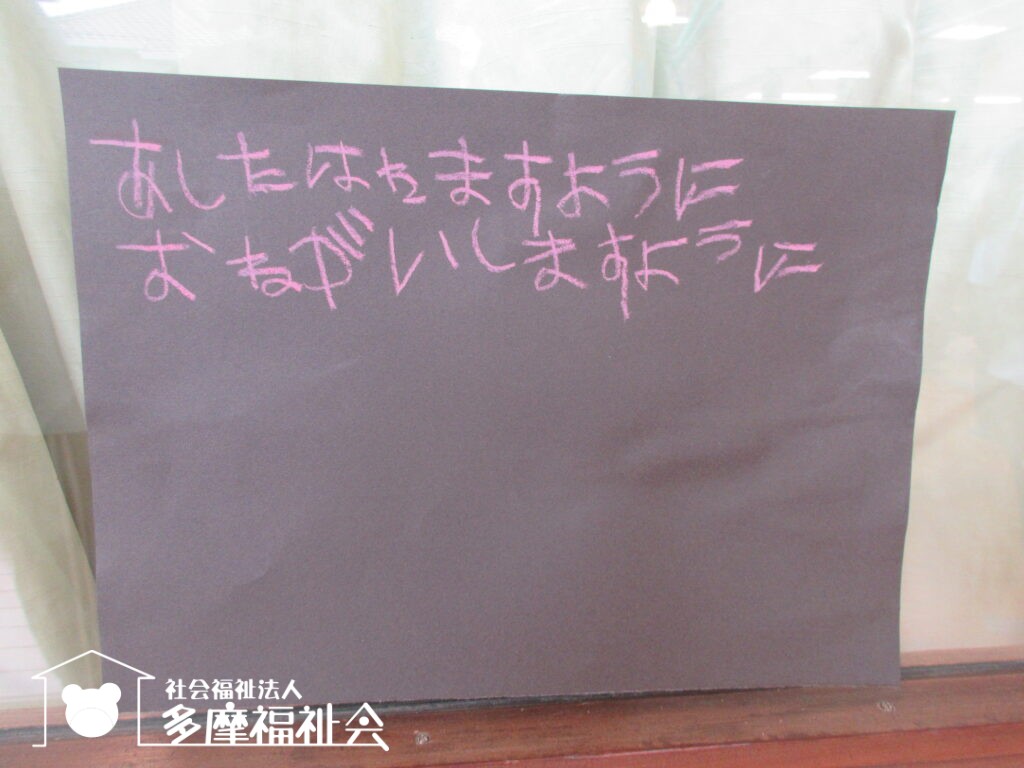 あしたはれますように
おねがいしますように
社会福祉法人
多摩福祉会